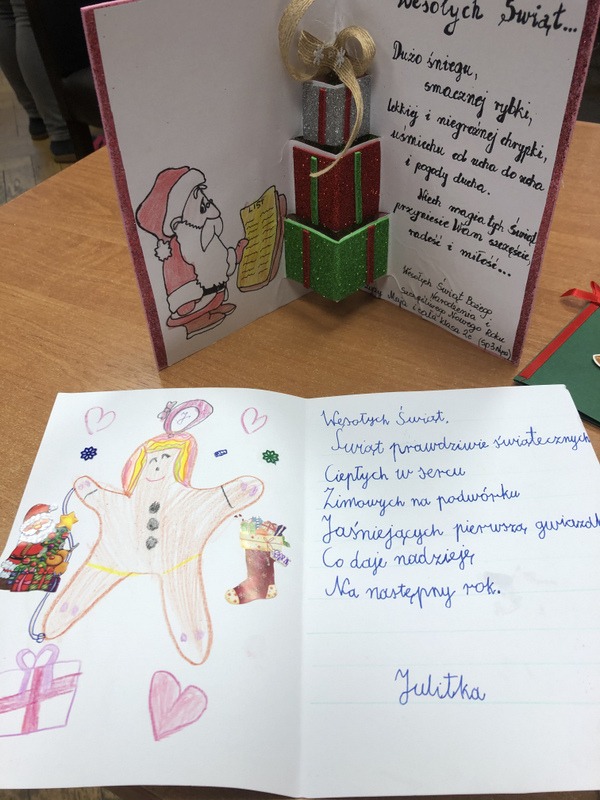 Wesołych Świąt...
Dużo śniegu,
smacznej rybki,
lekkiej i niegroźnej chrypki,
uśmiechu od ucha do ucha
i pogody ducha.
Niech magia tych Świąt
przyniesie Wam szczęście,
radość i miłość...
Wesołych Świąt Bożego
Narodzenia i
Szczęśliwego Nowego Roku
Maja klasa 2c (Sp3
LIST
Wesołych Świąt,
Świąt prawdziwie świątecznych
Ciepłych w sercu
Zimowych na podwórku
Jaśniejących pierwszą gwiazdk
Co daje nadzieję
Na następny rok.
Julitka
J